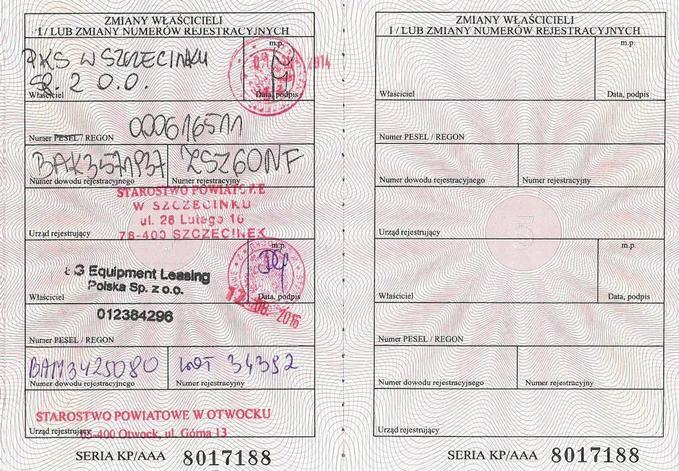 ZMIANY WŁAŚCICIELI
I / LUB ZMIANY NUMERÓW REJESTRACYJNYCH
m.p.
PKS W SZCZECINKU
SP. Z O.O.
2014
Właściciel
Data, podpis
000616511
Numer PESEL / REGON
BAK3571937 ZSZ60NF
Numer dowodu rejestracyjnego Numer rejestracyjny
STAROSTWO POWIATOWE
W SZCZECINKU
ul. 28 Lutego 16
78-400 SZCZECINEK
Urząd rejestrujący
m.p.
Equipment Leasing
Polska Sp. z o.o.
2016
Właściciel
Data, podpis
012384296
Numer PESEL / REGON
BAM3425080 WOT 34392
Numer dowodu rejestracyjnego Numer rejestracyjny
STAROSTWO POWIATOWE W OTWOCKU
Urząd rejestrujący
05-400 Otwock, ul. Górna 13
SERIA KP/AAA 8017188
ZMIANY WŁAŚCICIELI
I / LUB ZMIANY NUMERÓW REJESTRACYJNYCH
m.p.
Właściciel
Data, podpis
Numer PESEL / REGON
Numer dowodu rejestracyjnego Numer rejestracyjny
Urząd rejestrujący
m.p.
Właściciel
Data, podpis
Numer PESEL / REGON
Numer dowodu rejestracyjnego Numer rejestracyjny
Urząd rejestrujący
SERIA KP/AAA 8017188